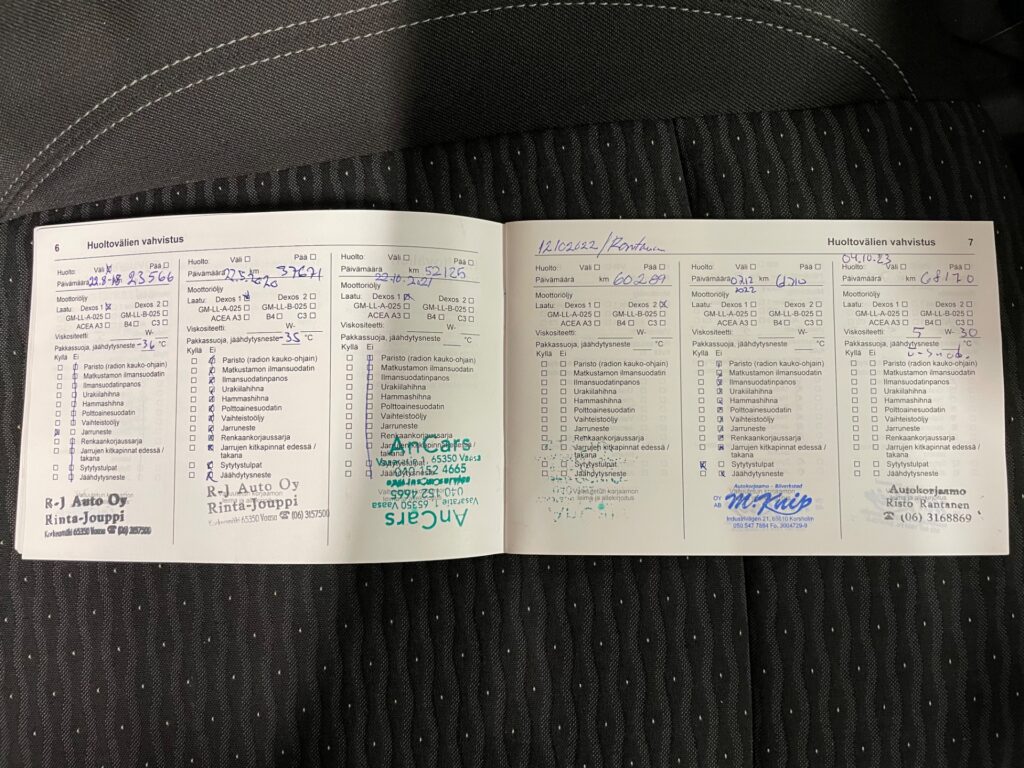 6 Huoltovälien vahvistus
Huolto: Väli Pää
Päivämäärä 22.8-18 23566
Moottoriöljy
Laatu: Dexos 1 Dexos 2
GM-LL-A-025 GM-LL-B-025
ACEA A3 B4 C3
Viskositeetti: W-
Pakkassuoja, jäähdytysneste -36 °C
Kyllä Ei
Paristo (radion kauko-ohjain)
Matkustamon ilmansuodatin
Ilmansuodatinpanos
Urakiilahihna
Hammashihna
Polttoainesuodatin
Vaihteistoöljy
Jarruneste
Renkaankorjaussarja
Jarrujen kitkapinnat edessä /
takana
Sytytystulpat
Jäähdytysneste
R-J Auto Oy
Rinta-Jouppi
65350 Vaasa ☎ (06) 3157500
Huolto: Väli Pää
Päivämäärä 22.5.2020 km 37671
Moottoriöljy
Laatu: Dexos 1 Dexos 2
GM-LL-A-025 GM-LL-B-025
ACEA A3 B4 C3
Viskositeetti: W-
Pakkassuoja, jäähdytysneste -35 °C
Kyllä Ei
Paristo (radion kauko-ohjain)
Matkustamon ilmansuodatin
Ilmansuodatinpanos
Urakiilahihna
Hammashihna
Polttoainesuodatin
Vaihteistoöljy
Jarruneste
Renkaankorjaussarja
Jarrujen kitkapinnat edessä /
takana
Sytytystulpat
Jäähdytysneste
R-J Auto Oy
Rinta-Jouppi
65350 Vaasa ☎ (06) 3157500
Huolto: Väli Pää
Päivämäärä 22.10.2021 km 52125
Moottoriöljy
Laatu: Dexos 1 Dexos 2
GM-LL-A-025 GM-LL-B-025
ACEA A3 B4 C3
Viskositeetti: W-
Pakkassuoja, jäähdytysneste °C
Kyllä Ei
Paristo (radion kauko-ohjain)
Matkustamon ilmansuodatin
Ilmansuodatinpanos
Urakiilahihna
Hammashihna
Polttoainesuodatin
Vaihteistoöljy
Jarruneste
Renkaankorjaussarja
Jarrujen kitkapinnat edessä /
takana
Sytytystulpat
Jäähdytysneste
AnCars
65350 Vaasa
040 152 4665
040 152 4665
Vasaratie 1, 65350 Vaasa
AnCars
Huoltovälien vahvistus 7
12102022/
Huolto: Väli Pää
Päivämäärä km 60289
Moottoriöljy
Laatu: Dexos 1 Dexos 2
GM-LL-A-025 GM-LL-B-025
ACEA A3 B4 C3
Viskositeetti: W-
Pakkassuoja, jäähdytysneste °C
Kyllä Ei
Paristo (radion kauko-ohjain)
Matkustamon ilmansuodatin
Ilmansuodatinpanos
Urakiilahihna
Hammashihna
Polttoainesuodatin
Vaihteistoöljy
Jarruneste
Renkaankorjaussarja
Jarrujen kitkapinnat edessä /
takana
Sytytystulpat
Jäähdytysneste
Huolto: Väli Pää
Päivämäärä 0712 2022 km
Moottoriöljy
Laatu: Dexos 1 Dexos 2
GM-LL-A-025 GM-LL-B-025
ACEA A3 B4 C3
Viskositeetti: W-
Pakkassuoja, jäähdytysneste °C
Kyllä Ei
Paristo (radion kauko-ohjain)
Matkustamon ilmansuodatin
Ilmansuodatinpanos
Urakiilahihna
Hammashihna
Polttoainesuodatin
Vaihteistoöljy
Jarruneste
Renkaankorjaussarja
Jarrujen kitkapinnat edessä /
takana
Sytytystulpat
Jäähdytysneste
Autokorjaamo - Bilverkstad
OY AB M. Knip
Industrivägen 21, 65610 Korsholm
050 547 7884 Fo. 3004729-9
04.10.23
Huolto: Väli Pää
Päivämäärä km 68170
Moottoriöljy
Laatu: Dexos 1 Dexos 2
GM-LL-A-025 GM-LL-B-025
ACEA A3 B4 C3
Viskositeetti: 5 W- 30
Pakkassuoja, jäähdytysneste °C
Kyllä Ei
Paristo (radion kauko-ohjain)
Matkustamon ilmansuodatin
Ilmansuodatinpanos
Urakiilahihna
Hammashihna
Polttoainesuodatin
Vaihteistoöljy
Jarruneste
Renkaankorjaussarja
Jarrujen kitkapinnat edessä /
takana
Sytytystulpat
Jäähdytysneste
Autokorjaamo
Risto Rantanen
☎ (06) 3168869